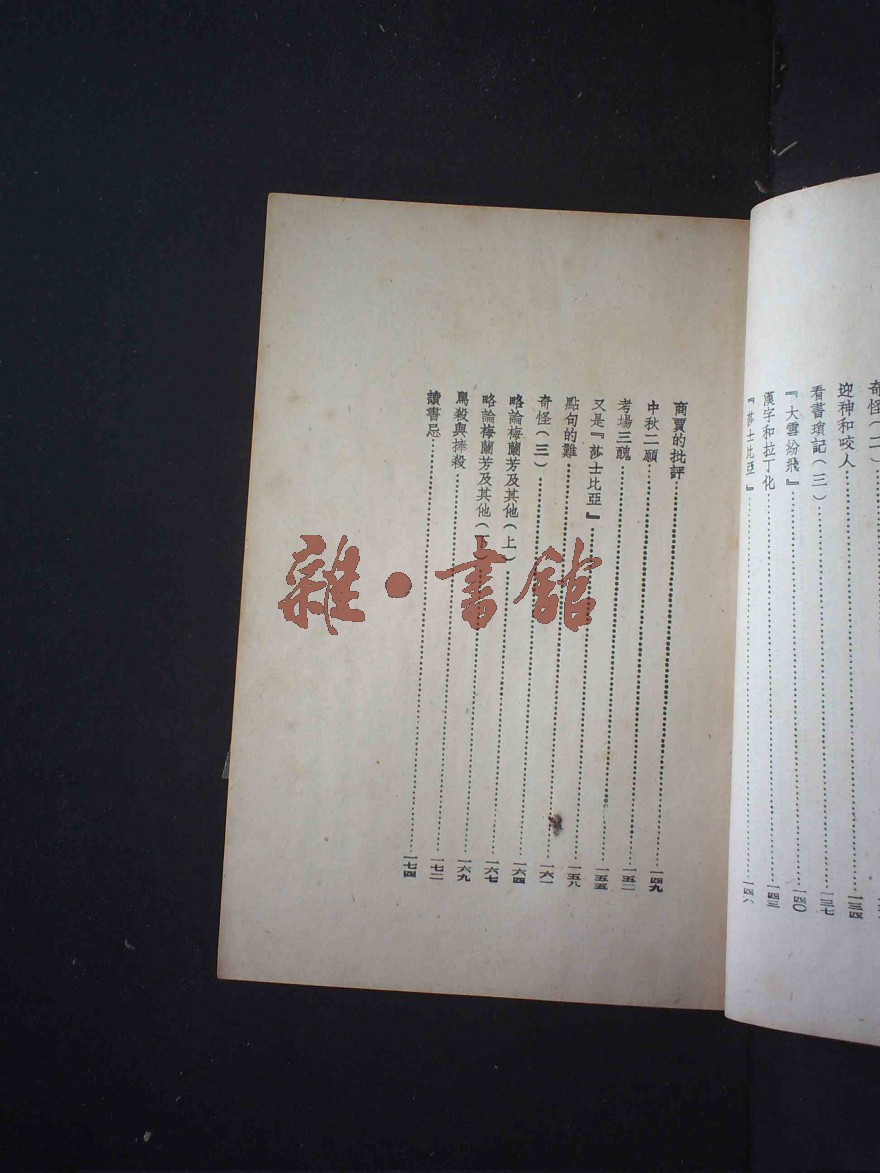 奇怪（二）
迎神和咬人……一三四
看書瑣記（三）……一三七
『大雪紛飛』……一四〇
漢字和拉丁化……一四三
『莎士比亞』……一四六
商賈的批評……一四九
中秋二願……一五二
考場三醜……一五五
又是『莎士比亞』……一五八
點句的難……一六一
奇怪（三）……一六四
略論梅蘭芳及其他（上）……一六七
略論梅蘭芳及其他（下）……一六九
罵殺與捧殺……一七二
讀書忌……一七四
雜·書館